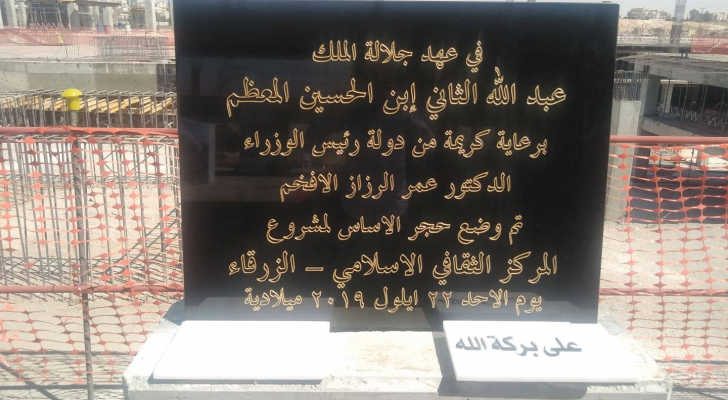 في عهد جلالة الملك
عبد الله الثاني إبن الحسين المعظم
برعاية كريمة من دولة رئيس الوزراء
الدكتور عمر الرزاز الافخم
تم وضع حجر الاساس لمشروع
المركز الثقافي الاسلامي – الزرقاء
يوم الاحد ٢٢ ايلول ٢٠١٩ ميلادية
على بركة الله